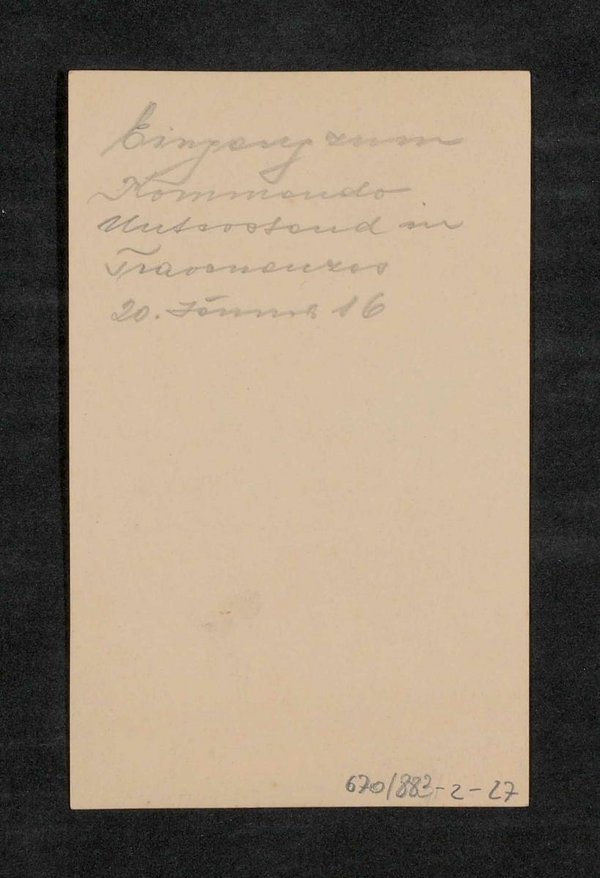 Eingang zum
Kommando
Unterstand in
Travenanzes
20. Jänner 16
670/883-2-27